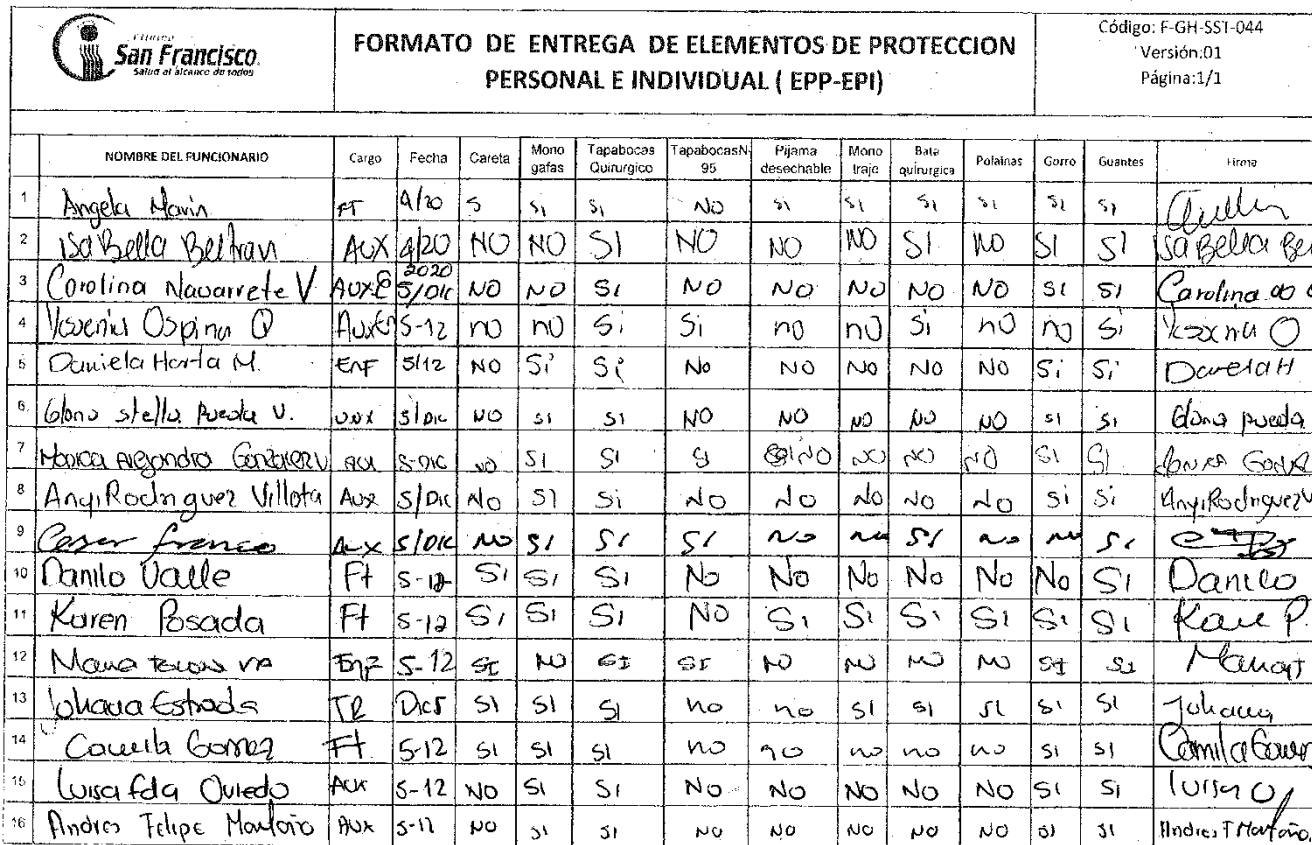 Clínica
San Francisco.
Salud al alcance de todos
FORMATO DE ENTREGA DE ELEMENTOS DE PROTECCION
PERSONAL E INDIVIDUAL ( EPP-EPI)
Código: F-GH-SST-044
Versión:01
Página:1/1
NOMBRE DEL FUNCIONARIO Cargo Fecha Careta Mono gafas Tapabocas Quirurgico TapabocasN-95 Pijama desechable Mono traje Bata quirurgica Polainas Gorro Guantes Firma
1 Angela Marin FT 4/20 S Si Si NO Si Si Si Si Si Si
2 isaBella Beltran AUX 4/20 NO NO SI NO NO NO SI NO SI SI isaBella Be
3 Carolina Navarrete V AUXE 2020 5/DIC NO NO SI NO NO NO NO NO SI SI Carolina
4 Ospina Q AuxEn 5-12 no no Si Si no no Si no no Si O
5 Daniela Horta M. Enf 5/12 NO Si Si No NO No No No Si Si Daniela H
6 stella Pueda V. aux 5/DIC NO SI SI NO NO NO NO NO SI SI pueda
7 Monica Alejandra Gonzalez V aux 5-DIC NO SI SI SI NO NO NO NO SI SI Monica
8 Angi Rodriguez Villota Aux 5/DIC No SI Si No No No No No Si Si Angi Rodriguez V
9 Cesar franco Aux 5/DIC NO SI SI SI NO NO SI NO NO SI
10 Danilo Valle Ft 5-12 SI SI SI No No No No No No SI Danilo
11 Karen Posada Ft 5-12 SI SI SI NO Si Si Si Si Si Si Kare P.
12 Enf 5-12 SI NO SI SI NO NO NO NO SI SI
13 Johana Estrada TR Dic5 SI SI SI no no SI SI SI SI SI Johana
14 Camila Gomez Ft 5-12 SI SI SI no no no no no SI SI Camila Gomez
15 Luisa fda Oviedo Aux 5-12 NO SI SI No No No No No SI Si luisa O
16 Andres Felipe Montaño Aux 5-12 NO SI SI NO NO NO NO NO SI SI Andres F Montaño.